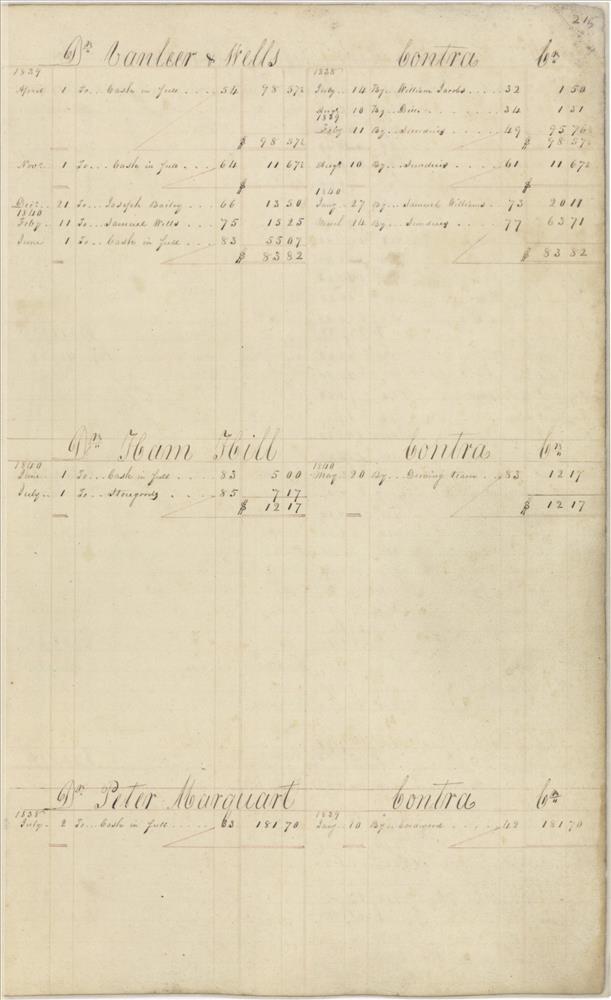 215
Dr. Vanleer & Wells Contra Cr.
1839 1838
April 1 To.. Cash in full 54 98 57½ July 14 By.. William Jacobs 32 1 50
Augt 10 By.. Ditto 34 1 31
1839
Feby 11 By.. Sundries 49 95 76½
$ 98 57½ $ 98 57½
Novr 1 To.. Cash in full 64 11 67½ Augt 10 By.. Sundries 61 11 67½
$ $
1840
Decr 21 To.. Joseph Bailey 66 13 50 Jany 27 By.. Samuel Williams 73 20 11
1840
Feby 11 To.. Samuel Wells 75 15 25 March 14 By.. Sundries 77 63 71
June 1 To.. Cash in full 83 55 07
$ 83 82 $ 83 82
Dr. Ham Hill Contra Cr.
1840 1840
June 1 To.. Cash in full 83 5 00 May 20 By.. Driving team 83 12 17
July 1 To.. Storegoods 85 7 17
$ 12 17 $ 12 17
Dr. Peter Marquart Contra Cr.
1838 1839
July 2 To.. Cash in full 63 181 70 Jany 10 By.. Cordwood 42 181 70